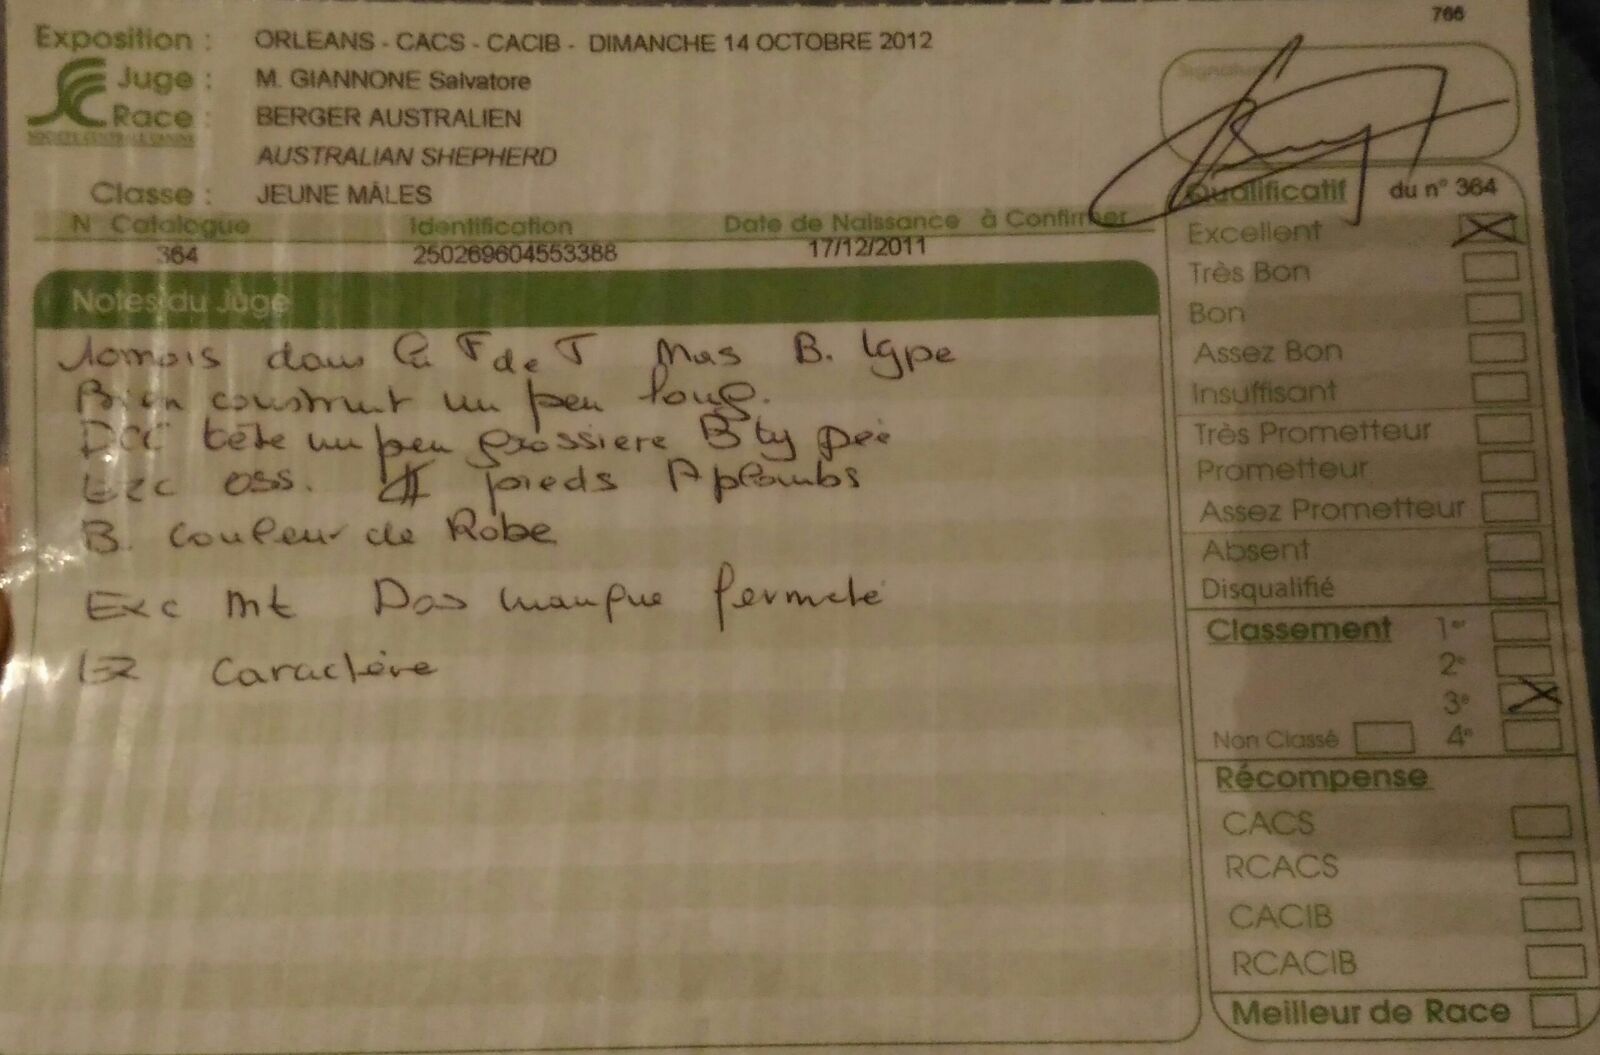 766
Exposition : ORLEANS - CACS - CACIB - DIMANCHE 14 OCTOBRE 2012
Juge : M. GIANNONE Salvatore
Race : BERGER AUSTRALIEN
SOCIETE CENTRALE CANINE
AUSTRALIAN SHEPHERD
Classe : JEUNE MÂLES
Signature
N Catalogue Identification Date de Naissance à Confirmer
364 250269604553388 17/12/2011
Notes du Juge
10mois dans la F de T Mas B. type
Bien construit un peu long.
DCC tête un peu grossiere B ty pée
Exc oss. pieds Aplombs
B. Couleur de Robe
Exc mt Dos manque fermeté
Ex Caractère
Qualificatif du n° 364
Excellent
Très Bon
Bon
Assez Bon
Insuffisant
Très Prometteur
Prometteur
Assez Prometteur
Absent
Disqualifié
Classement 1er
2e
3e
Non Classé 4e
Récompense
CACS
RCACS
CACIB
RCACIB
Meilleur de Race